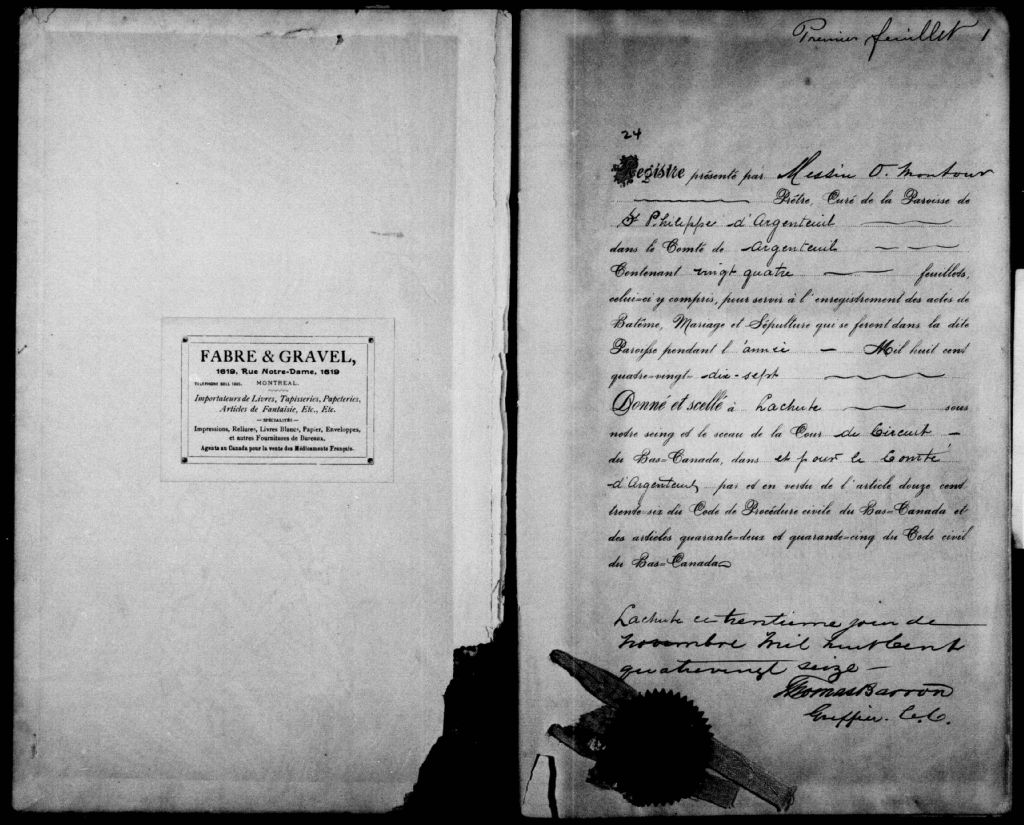 FABRE & GRAVEL,
1619, Rue Notre-Dame, 1619
TELEPHONE BELL
MONTREAL.
Importateurs de Livres, Tapisseries, Papeteries,
Articles de Fantaisie, Etc., Etc.
— SPÉCIALITÉS —
Impressions, Reliures, Livres Blancs, Papier, Enveloppes,
et autres Fournitures de Bureaux.
Agents au Canada pour la vente des Médicaments Français.
Premier feuillet 1
24
Registre présenté par Messire O. Montour
Prêtre, Curé de la Paroisse de
St Philippe d'Argenteuil
dans le Comté de Argenteuil
Contenant vingt quatre feuillets,
celui-ci y compris, pour servir à l'enregistrement des actes de
Batême, Mariage et Sépulture qui se feront dans la dite
Paroisse pendant l'année — Mil huit cent
quatre-vingt-dix-sept
Donné et scellé à Lachute sous
notre seing et le sceau de la Cour de Circuit —
du Bas-Canada, dans et pour le Comté
d'Argenteuil par et en vertu de l'article douze cent
trente-six du Code de Procédure civile du Bas-Canada et
des articles quarante-deux et quarante-cinq du Code civil
du Bas-Canada
Lachute ce trentieme jour de
novembre Mil huit Cent
quatrevingt seize —
Thomas Barron
Greffier. C.C.